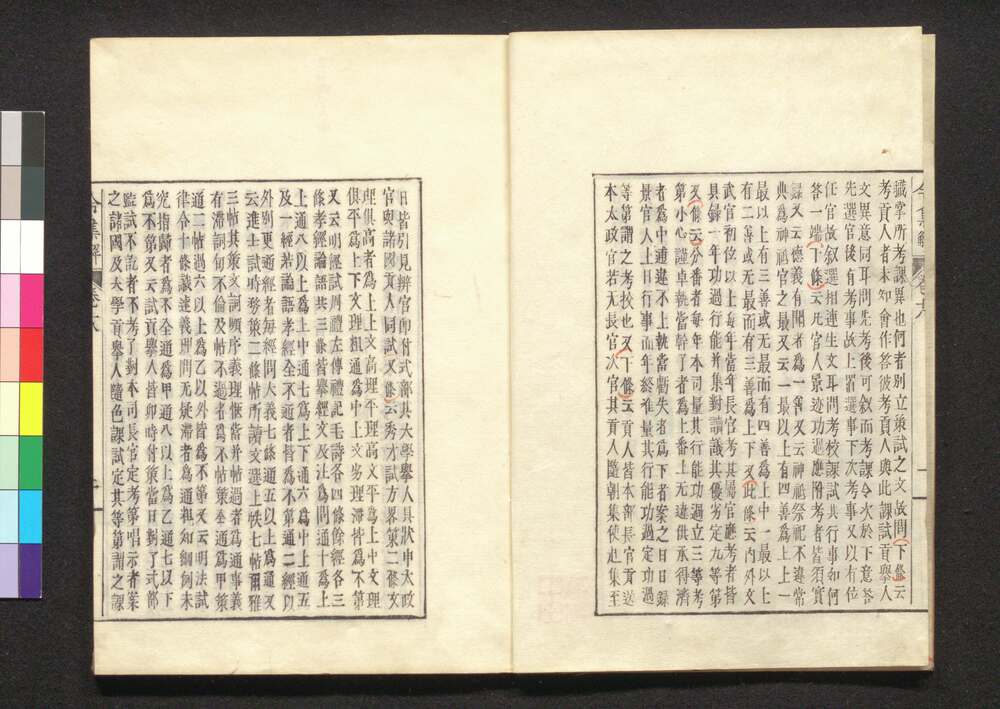 職掌所考課異也何者別立策試之文故問下條云
考貢人者未知會作答彼考貢人與此課試貢擧人
文異意同耳問先考後可敘而考課令次於下意答
先選官後有考事故上置選事下次考事又以有位
任官故叙選相連生文耳問考校課試共行事如何
答一端下條云凡官人景迹功過應附考者皆須實
錄又云德義有聞者為一善又云神祇祭祀不違常
典為神祇官之最又云一最以上有四善為上上一
最以上有三善或无最而有四善為上中一最以上
有二善或无最而有三善為上下又此條云内外文
武官初位以上每年當年長官考其屬官應考者皆
具錄一年功過行能並集對讀議其優劣定九等第
又條云分番者每年本司量其行能功過立三等考
第小心謹卓執當幹了者為上番上无違供承得濟
者為中逋違不上執當虧失者為下考案之日日錄
景官人上日行事而年終准量其行能功過定功過
等第謂之考校也又下條云貢人皆本部長官貢送
本太政官若无長官次官其貢人隨朝集使赴集至
日皆引見辨官即付式部其大學擧人具狀申太政
官與諸國貢人同試又條云秀才試方畧策二條文
理集高者為上上文高理平理高文平為上中文理
俱平為上下文理粗通為中上文劣理滯皆為不第
又云明經試周禮左傳禮記毛詩各四條餘經各三
條孝經論語共三條皆擧經文及注為問通十為上
上通八以上為上中通七為上下通六為中上通五
及一經若論語孝經全不通者皆為不第通二經以
外別更通經者每經問大義七條通五以上為通又
云進士試時務策二條帖所讀文選上帙七帖爾雅
三帖其策文詞順序義理愜當并帖過者為通事義
有滯詞句不倫及帖不過者為不帖策全通為甲策
通二帖過六以上為乙以外皆為不第又云明法試
律令十條識達義理問无疑滯者為通粗知綱例未
究指歸者為不全通為甲通八以上為乙通七以下
為不第又云試貢擧人皆卯時付策當日對了式部
監試不訖者不考了對本司長官定考第唱示者案
之諸國及大學貢擧人隨色課試定其等第謂之課